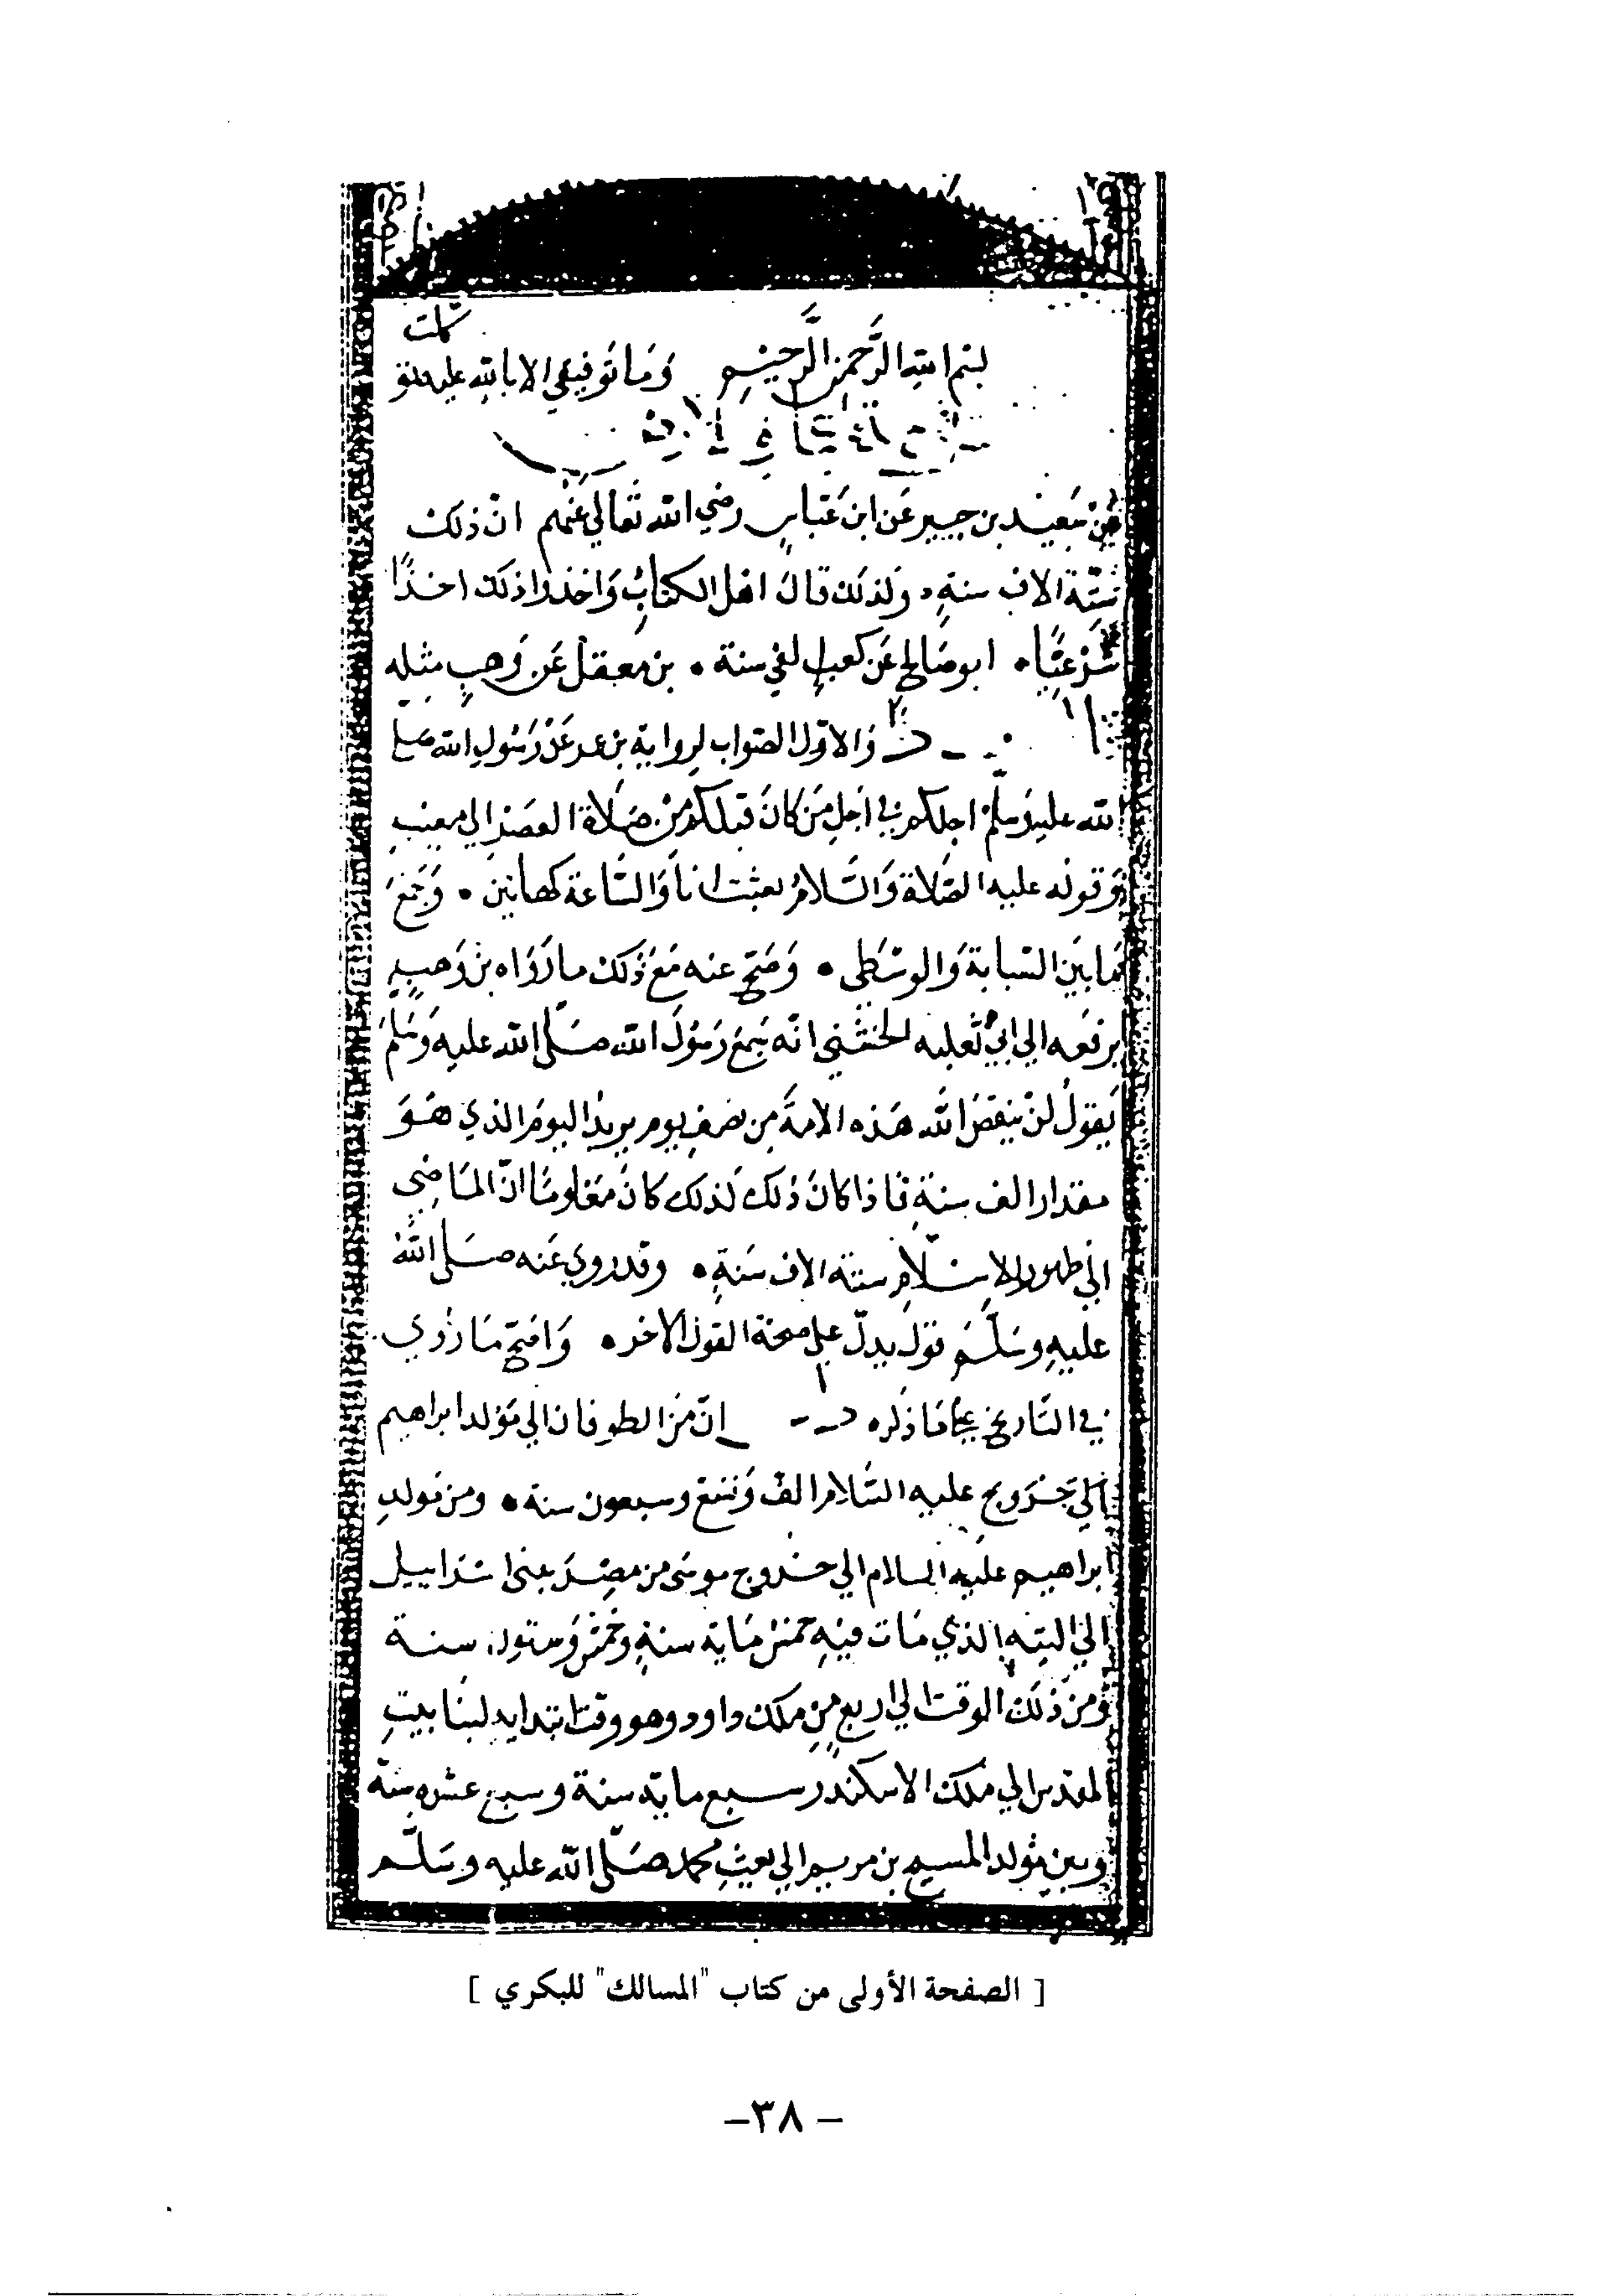 بسم الله الرحمن الرحيم وما توفيقي الا بالله عليه توكلت
عن سعيد بن جبير عن ابن عباس رضي الله تعالى عنهم ان ذلك
ستة الاف سنة ولذلك قال اهل الكتاب واخذوا ذلك اخذا
شرعيا ابو صالح عن كعب الفي سنة بن معقل عن وهب مثله
والاول الصواب لرواية بن عمر عن رسول الله صلى
الله عليه وسلم اجلكم في اجل من كان قبلكم من صلاة العصر الي مغيب
وقوله عليه الصلاة والسلام بعثت انا والساعة كهاتين وجمع
ما بين السبابة والوسطى وصح عنه مع ذلك ما رواه بن وهب
يرفعه الي ابي ثعلبه الخشني انه سمع رسول الله صلى الله عليه وسلم
يقول لن ينقص الله هذه الامة من نصف يوم يريد اليوم الذي هو
مقدار الف سنة فاذا كان ذلك لذلك كان معلوما ان الماضي
الي ظهور الاسلام ستة الاف سنة وقد روي عنه صلى الله
عليه وسلم قول يدل على صحة القول الاخر واصح ما روي
في التاريخ ما ذكره ان من الطوفان الي مولد ابراهيم
عليه السلام الف وتسع وسبعون سنة ومن مولد
ابراهيم عليه السلام الي خروج موسى من مصر ببني اسراييل
الي التيه الذي مات فيه خمس ماية سنة وخمس وستون سنة
ومن ذلك الوقت الي اربع من ملك داود وهو وقت ابتدايه لبنا بيت
المقدس الي ملك الاسكندر سبع ماية سنة وسبع عشره سنة
وبين مولد المسيح بن مريم الي بعث محمد صلى الله عليه وسلم
[ الصفحة الأولى من كتاب "المسالك" للبكري ]
- ٣٨ -